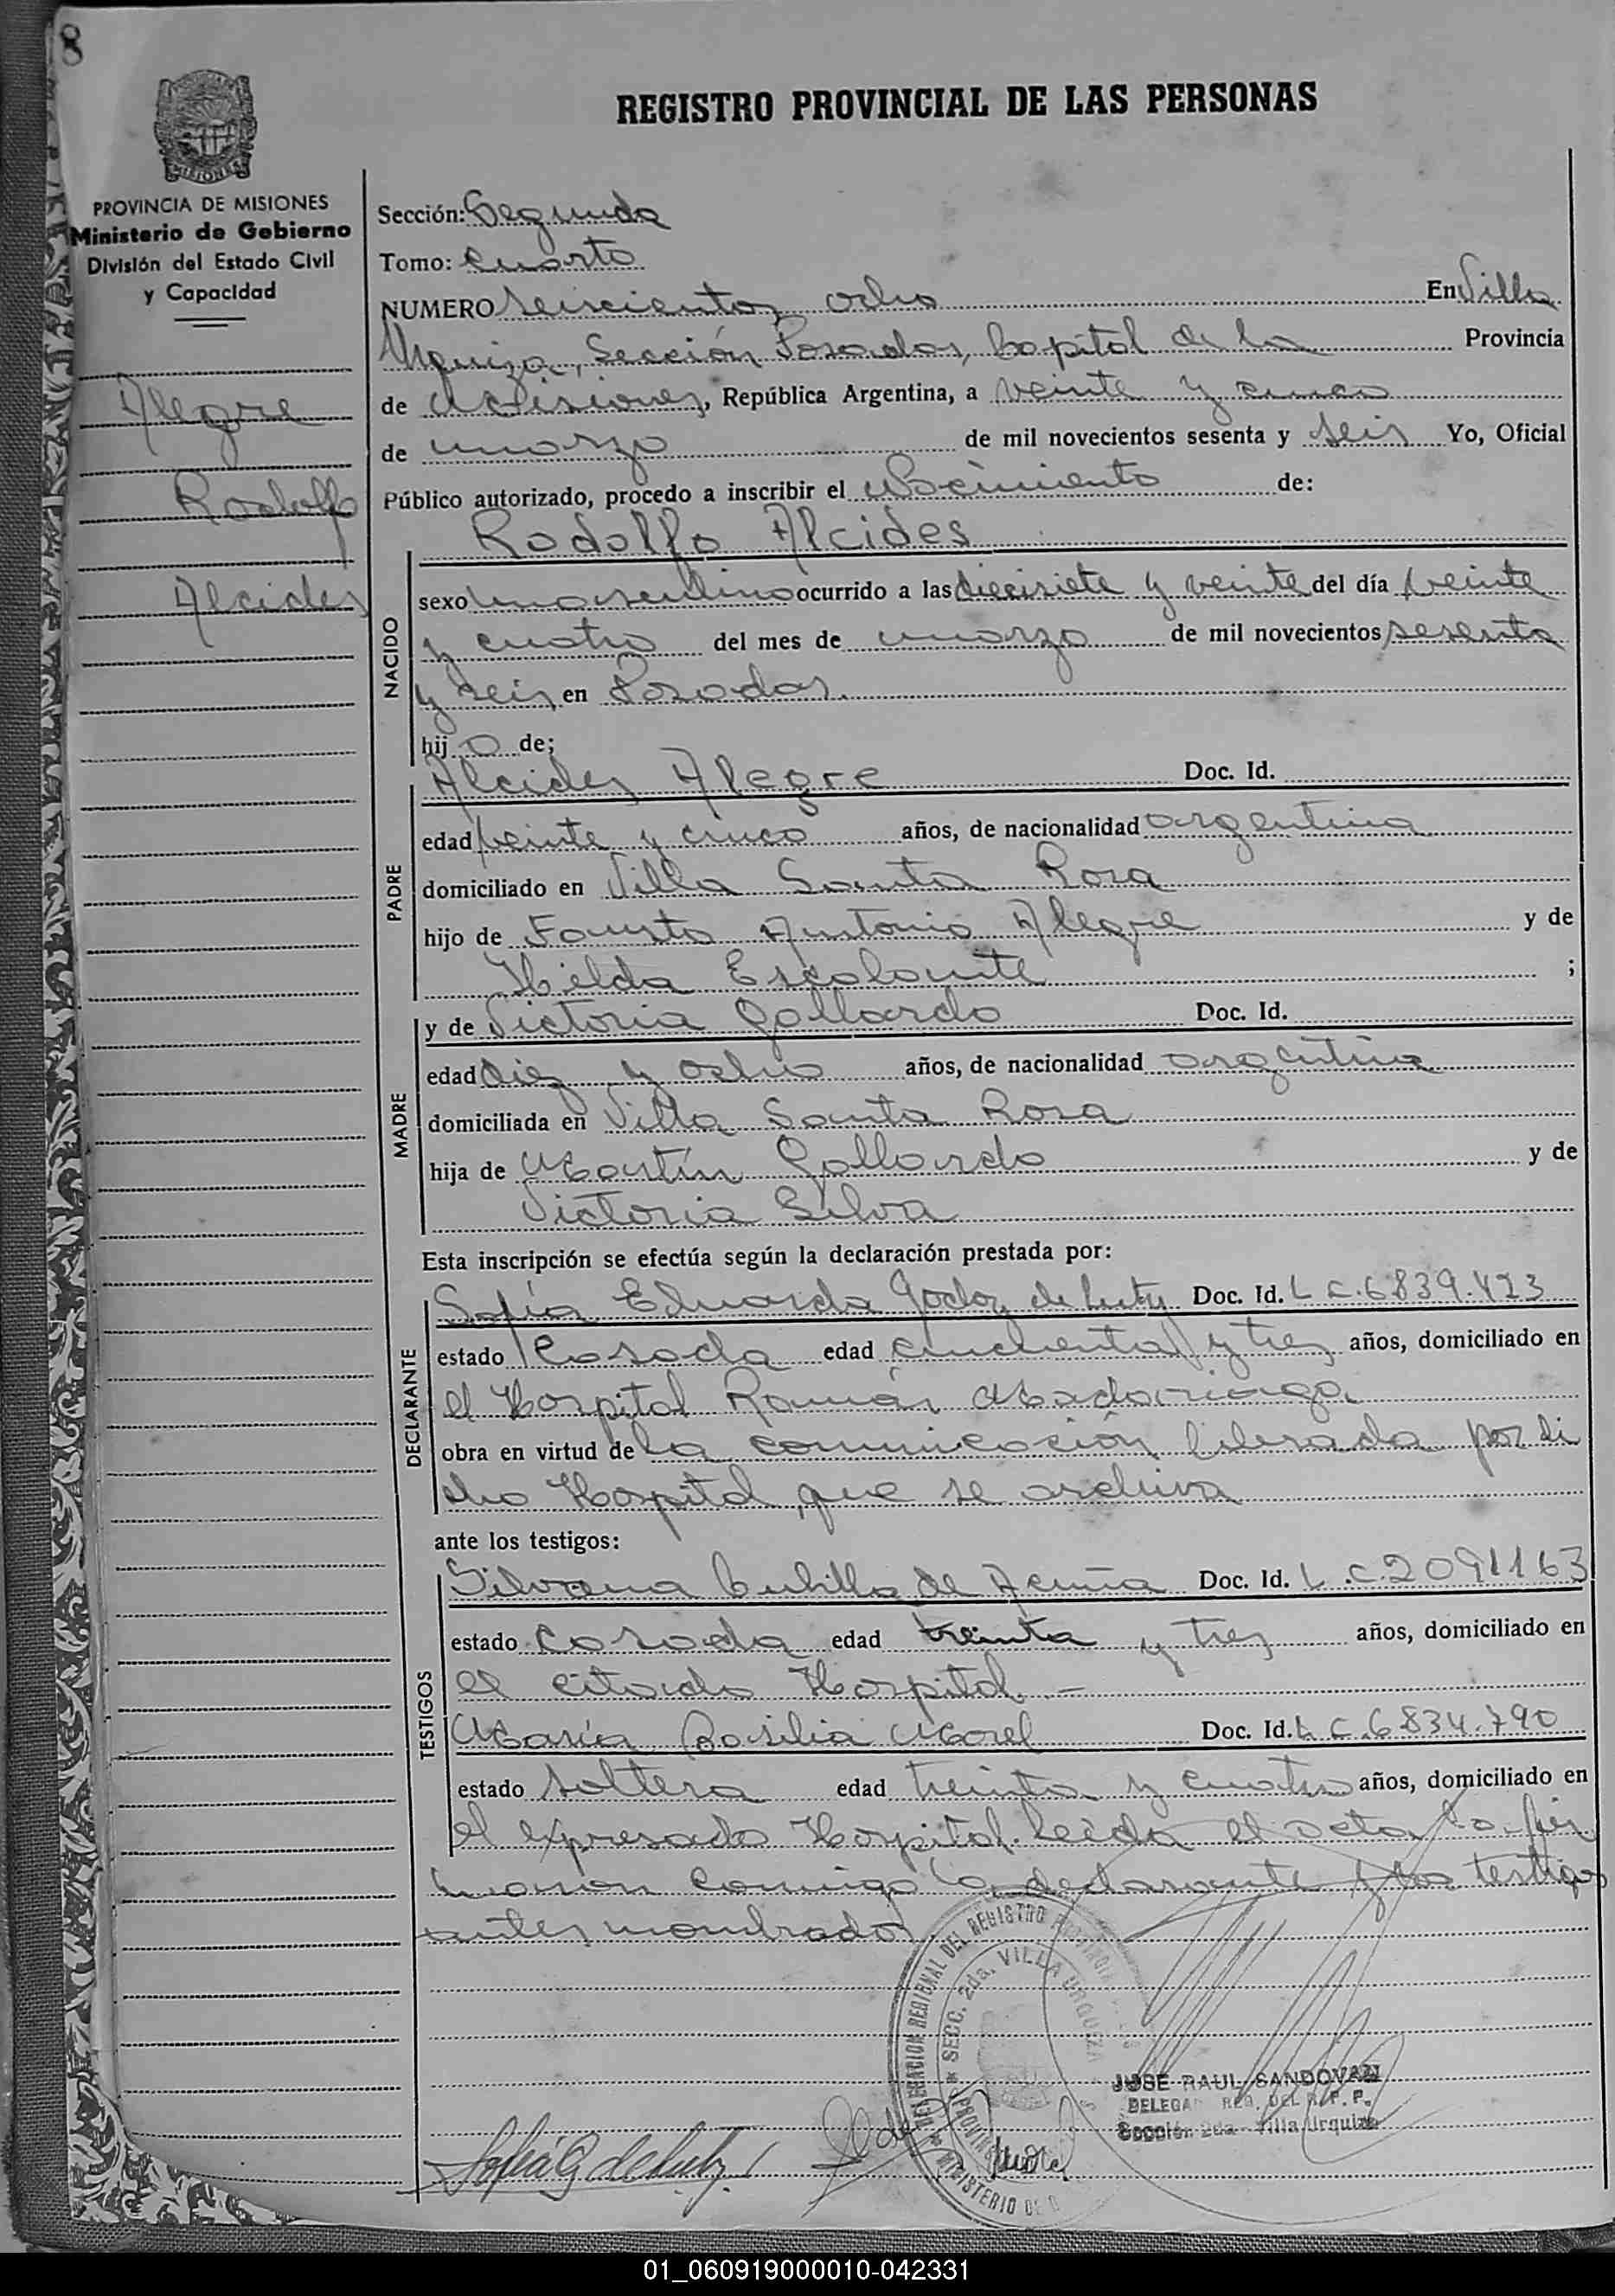 8
REGISTRO PROVINCIAL DE LAS PERSONAS
MISIONES
PROVINCIA DE MISIONES
Ministerio de Gobierno
División del Estado Civil
y Capacidad
Alegre
Rodolfo
Alcides
Sección: Segunda
Tomo: Cuarto
NUMERO seiscientos ocho En Villa
Urquiza, Sección Posadas, Capital de la Provincia
de Misiones, República Argentina, a veinte y cinco
de marzo de mil novecientos sesenta y seis Yo, Oficial
Público autorizado, procedo a inscribir el Nacimiento de:
Rodolfo Alcides
NACIDO
sexo masculino ocurrido a las diecisiete y veinte del día veinte
y cuatro del mes de marzo de mil novecientos sesenta
y seis en Posadas.
hijo de;
PADRE
Alcides Alegre Doc. Id.
edad veinte y cinco años, de nacionalidad argentina
domiciliado en Villa Santa Rosa
hijo de Fausto Antonio Alegre y de
Hilda Escalante ;
MADRE
y de Victoria Gallardo Doc. Id.
edad diez y ocho años, de nacionalidad argentina
domiciliada en Villa Santa Rosa
hija de Martín Gallardo y de
Victoria Silva
Esta inscripción se efectúa según la declaración prestada por:
DECLARANTE
Sofía Eduarda Godoy de Doc. Id. L C. 6839.423
estado Casada edad cincuenta y tres años, domiciliado en
el Hospital Ramón Madariaga
obra en virtud de la comunicación librada por di
cho Hospital que se archiva
ante los testigos:
TESTIGOS
Silvana Cubilla de Acuña Doc. Id. L.C. 2091163
estado casada edad treinta y tres años, domiciliado en
el citado Hospital. -
María Basilia Morel Doc. Id. L C. 6834.790
estado soltera edad treinta y cuatro años, domiciliado en
el expresado Hospital. Leída el acta la fir
maron conmigo la declarante y los testigos
antes nombrados
DELEGACION REGIONAL DEL REGISTRO PROVINCIAL
SECC. 2da. VILLA URQUIZA
MINISTERIO DE G
JOSE RAUL SANDOVAL
DELEGA REG. DEL R. P. P.
Sección 2da - Villa Urquiza
Sofía G de
01_060919000010-042331